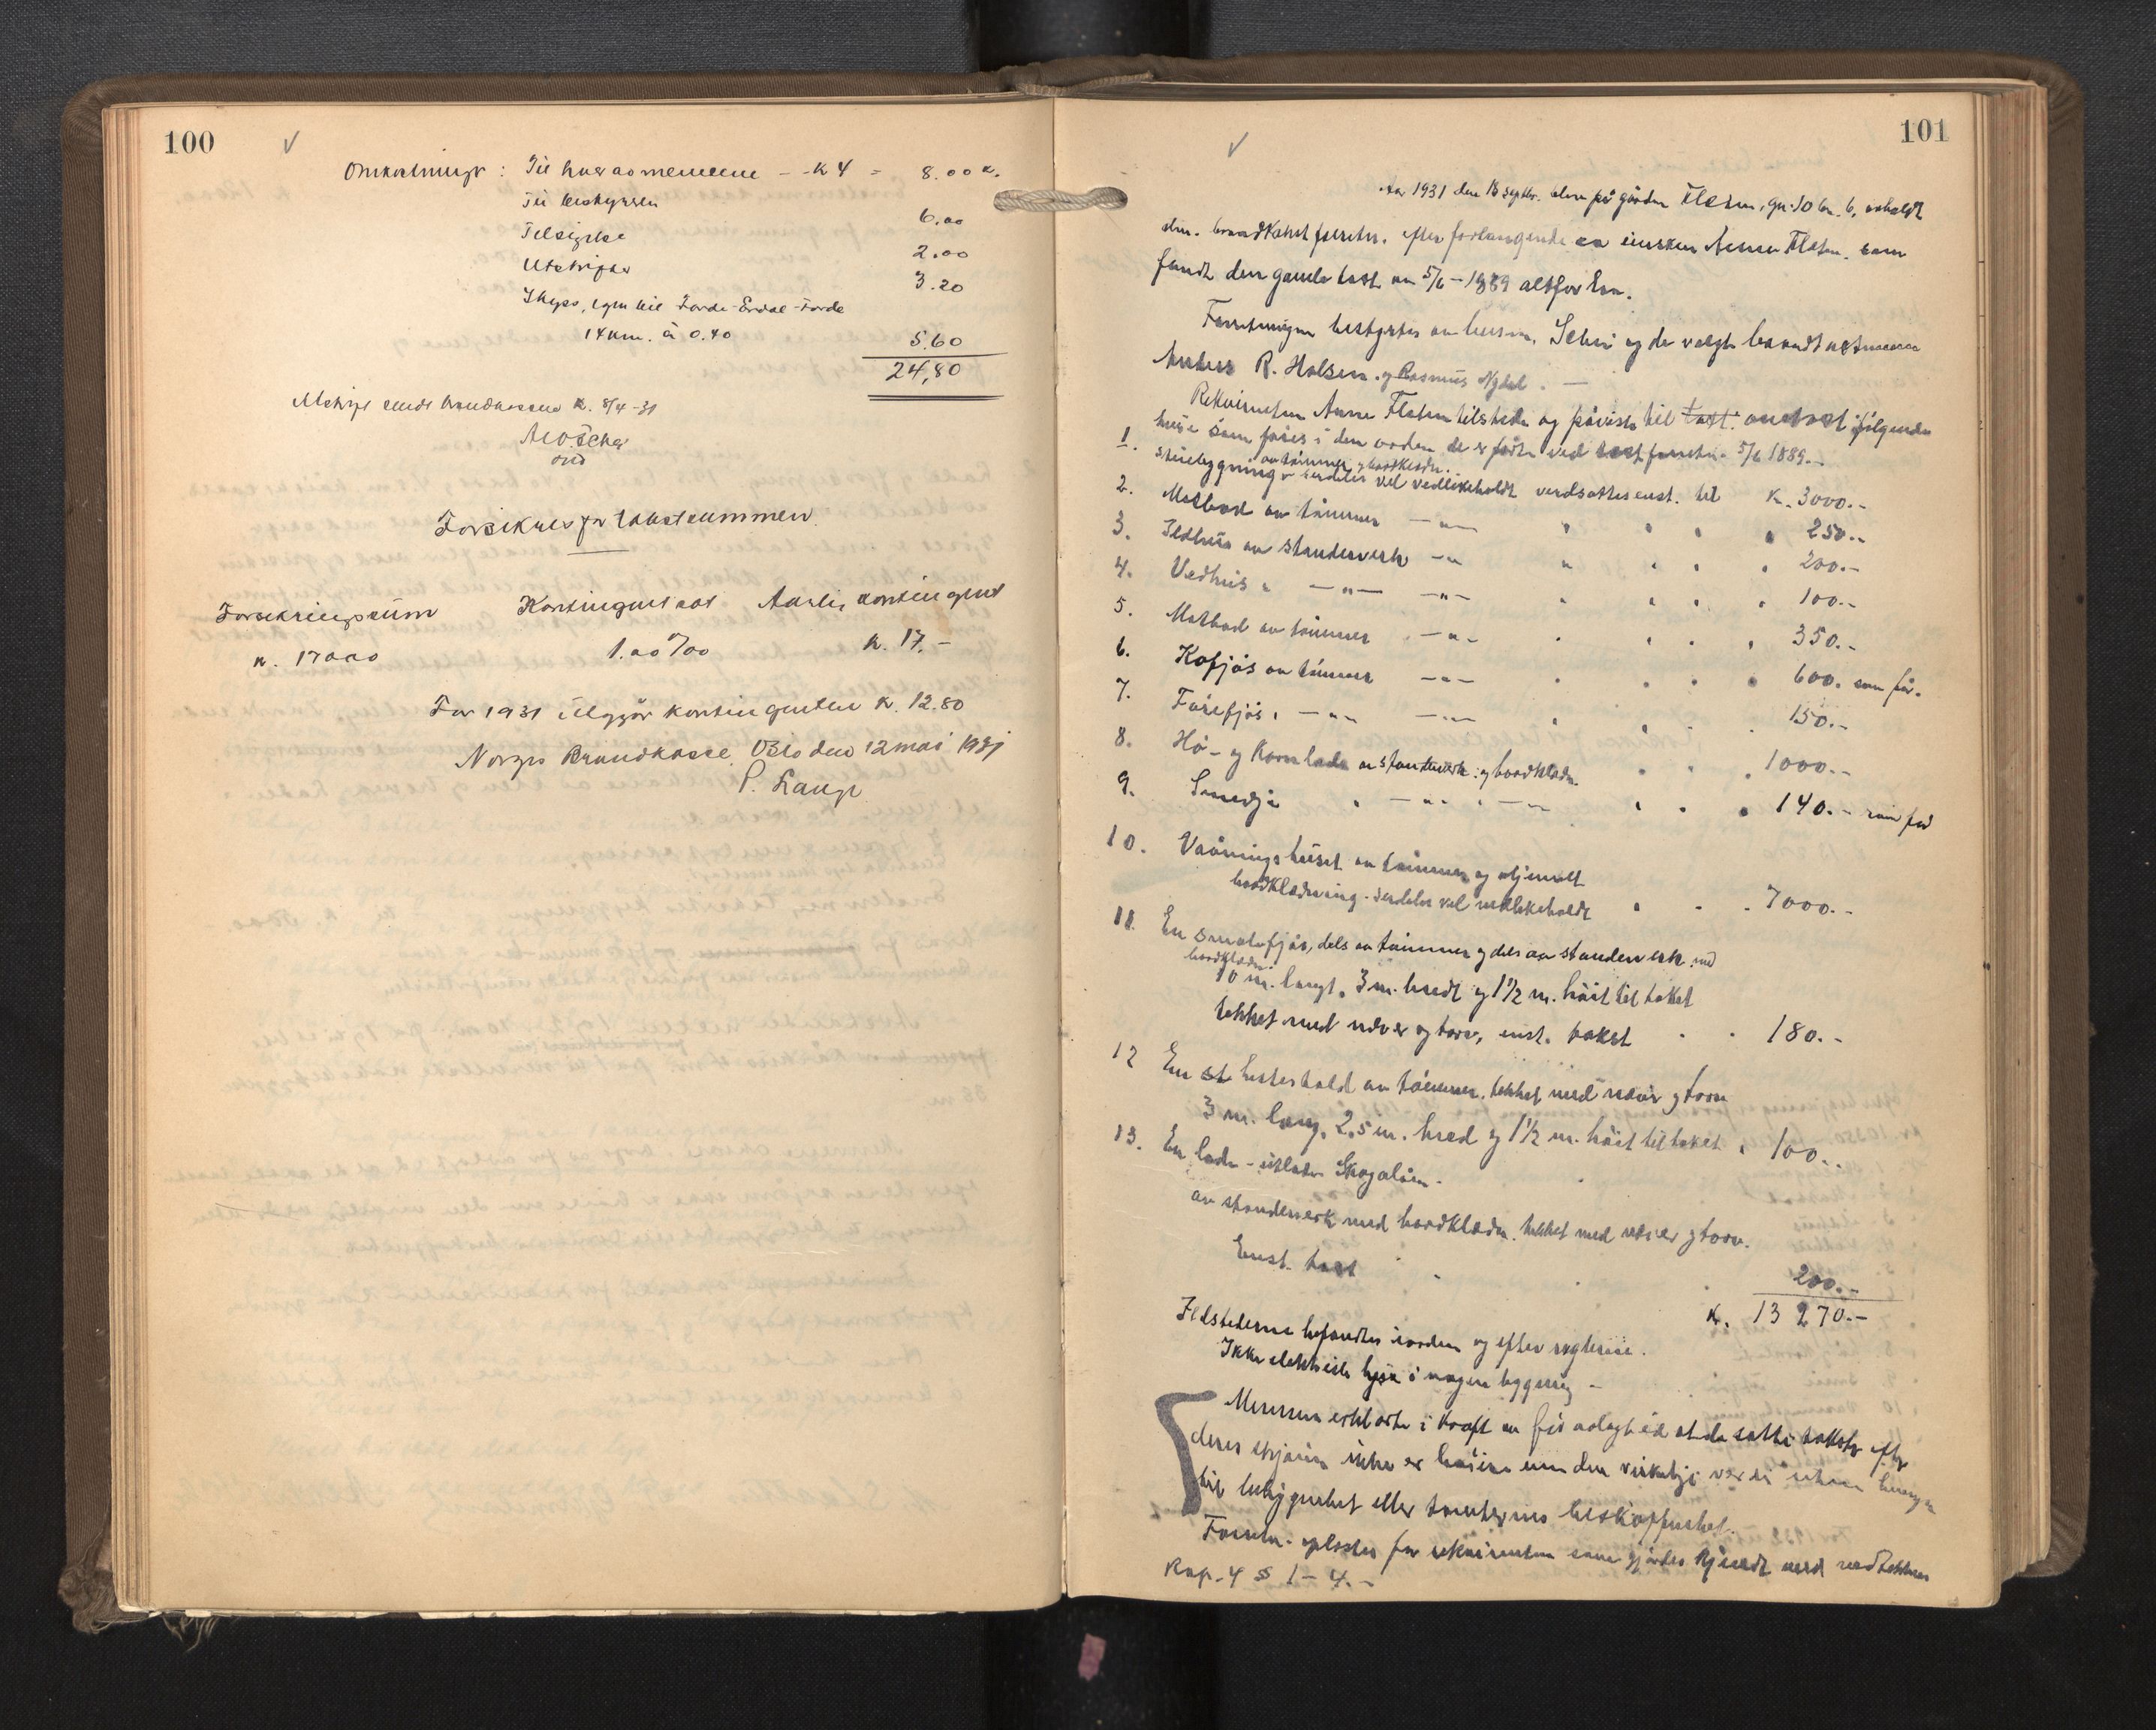 100
Omkostninger : Til hver av mennene - - K 4 = 8.00 K.
Til bestyreren 6.00
Tilsigelse 2.00
Utskrift 3.20
Skyss, egen bil Førde-Erdal-Førde
14 km. à 0.40 5.60
24,80
Utskrift sendt brandkassen K. 8/4-31
Forsikres for takstsummen.
Forsikringssum Kontingentsats Aarlig kontingent
K. 17000 1.00 ‰ K. 17.-
For 1931 utgjør kontingenten K. 12.80
Norges Brandkasse, Oslo den 12 mai 1931
P. Lange
101
Aar 1931 den 16 septbr. blev på gården Flaten, gn. 10 bn. 6, avholdt
alm. brandtakstforretn. efter forlangende av enken Anna Flaten. som
fandt den gamle takst av 5/6-1889 altfor lav.
Forretningen bestyrtes av lensm. og de valgte brandtakstmenn
Anders R. Halsen og Rasmus Nydal. -
Rekvirenten Anna Flaten tilstede og påviste til takst: følgende
huse som føres i den orden de er ført ved takstforretn. 5/6 1889.-
1. Stuebygning av tømmer, bordklædn. særdeles vel vedlikeholdt verdsattes enst. til K. 3000.-
2. Matbod av tømmer - " - " " " " 250.-
3. Ildhus av standerverk - " " " " " 200.-
4. Vedhus " - " - - " - " " " " 100.-
5. Matbod av tømmer - " - " " " " 350.-
6. Kofjøs av tømmer - " - " " " " 600. som før.
7. Fårefjøs, - " - - " - " " " 150.-
8. Hø- og Kornlade av standerverk og bordklædn. " " " 1000.-
9. Smedja " - " - " - " - " " " 140.- som før
10. Vaaningshuset av tømmer og oljemalt
bordklædning. særdeles vel vedlikeholdt " " " 7000.-
11. En smalefjøs, dels av tømmer og dels av standerverk med
bordklædn.
10 m. langt, 3 m. bredt og 1 1/2 m. høit til taket
tekket med never og torv, enst. takst " " 180.-
12 En st hestestald av tømmer, tekket med never og torv
3 m. lang, 2,5 m. bred og 1 1/2 m. høit til taket " 100.-
13. En lade - utlade
av standerverk med bordklædn. tekket med never og torv.
Enst. takst " " " 200.-
K. 13 270.-
Ildstederne befandtes i orden og efter reglerne.
Ikke elektrisk lys i nogen bygning -
Mennene erklærte i kraft av før avlagt ed at de satte takster efter
deres skjøn ikke er høiere enn den virkelige verdi uten hensyn
til beliggenhet eller tomternes beskaffenhet.
Forretn. oplæstes for rekvirenten som gjordes kjendt med vedtektenes
Kap. 4 §§ 1 - 4. -